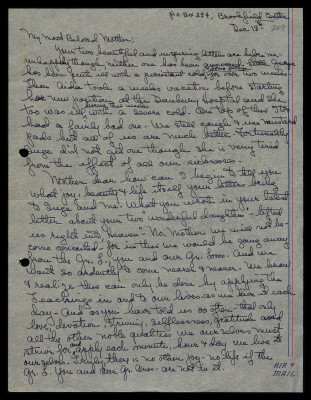 P.O. Box 254, Brookfield Center
Dec. 13th
My most Beloved Mother,
Your two beautiful and inspiring letters are before me
unhappily though neither one has been answered. George
has been quite ill with a persistent cold, for over two weeks.
Then Aida took a week's vacation before starting
her new position at the Danbury Hospital and she
during this week
too was ill with a severe cold. On top of this Tom
had a fairly bad one. We tried cough & use mustard
pads but all of us are much better. Fortunately
Inge did not get one though she is very tired
from the effect of all our sicknesses.
Mother dear how can I begin to tell you
what joy, beauty & life itself your letters bring
to Inge and me. What you wrote in your latest
letter about your two "wonderful daughters" lifted
us right into heaven. No, Mother we will not be-
come conceited for in this we would be going away
from the Gr. S., you and our Gr. Dros. And we
want so ardently to come nearer & nearer. We know
& realize this can only be done by applying the
Teachings in and to our lives as we live it each
day. And as you have told us so often that only
love, devotion, striving, selflessness, gratitude and
all the other noble qualities we ourselves must
strive for and apply each minute, hour & day we live to
ourselves. Truly, there is no other joy - no life if the
Gr. S. you and our Gr. Dros. are not in it.
AIR
MAIL